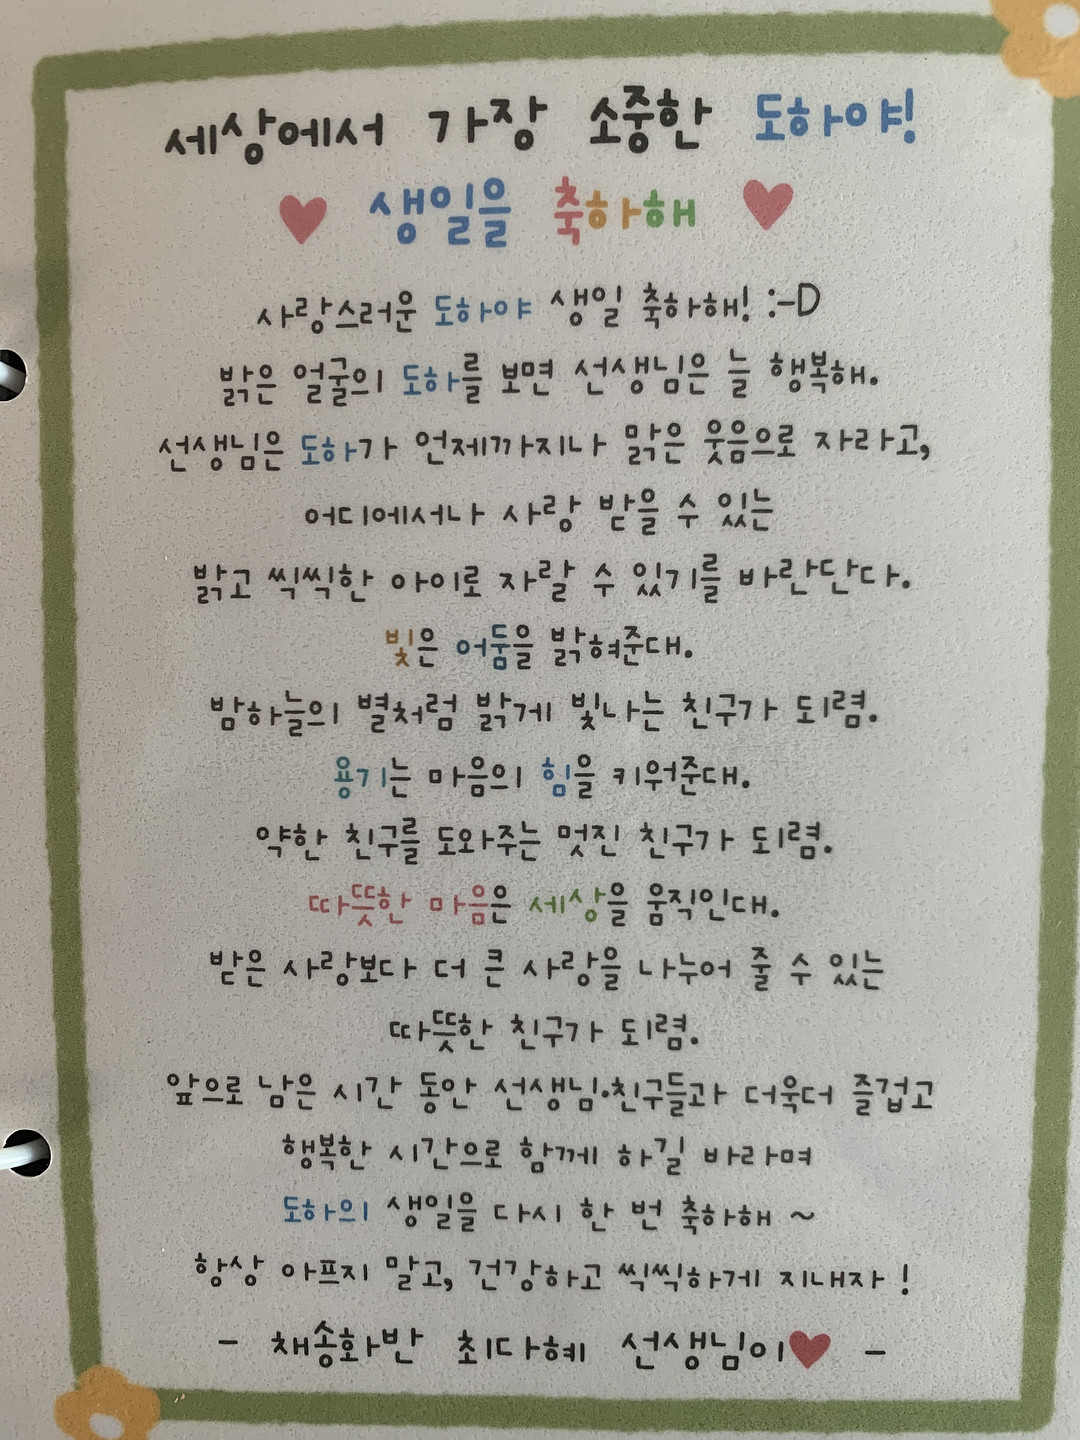 세상에서 가장 소중한 도하야!
♥ 생일을 축하해 ♥
사랑스러운 도하야 생일 축하해! :-D
밝은 얼굴의 도하를 보면 선생님은 늘 행복해.
선생님은 도하가 언제까지나 맑은 웃음으로 자라고,
어디에서나 사랑 받을 수 있는
밝고 씩씩한 아이로 자랄 수 있기를 바란단다.
빛은 어둠을 밝혀준대.
밤하늘의 별처럼 밝게 빛나는 친구가 되렴.
용기는 마음의 힘을 키워준대.
약한 친구를 도와주는 멋진 친구가 되렴.
따뜻한 마음은 세상을 움직인대.
받은 사랑보다 더 큰 사랑을 나누어 줄 수 있는
따뜻한 친구가 되렴.
앞으로 남은 시간 동안 선생님·친구들과 더욱더 즐겁고
행복한 시간으로 함께 하길 바라며
도하의 생일을 다시 한 번 축하해 ~
항상 아프지 말고, 건강하고 씩씩하게 지내자!
- 채송화반 최다혜 선생님이♥ -